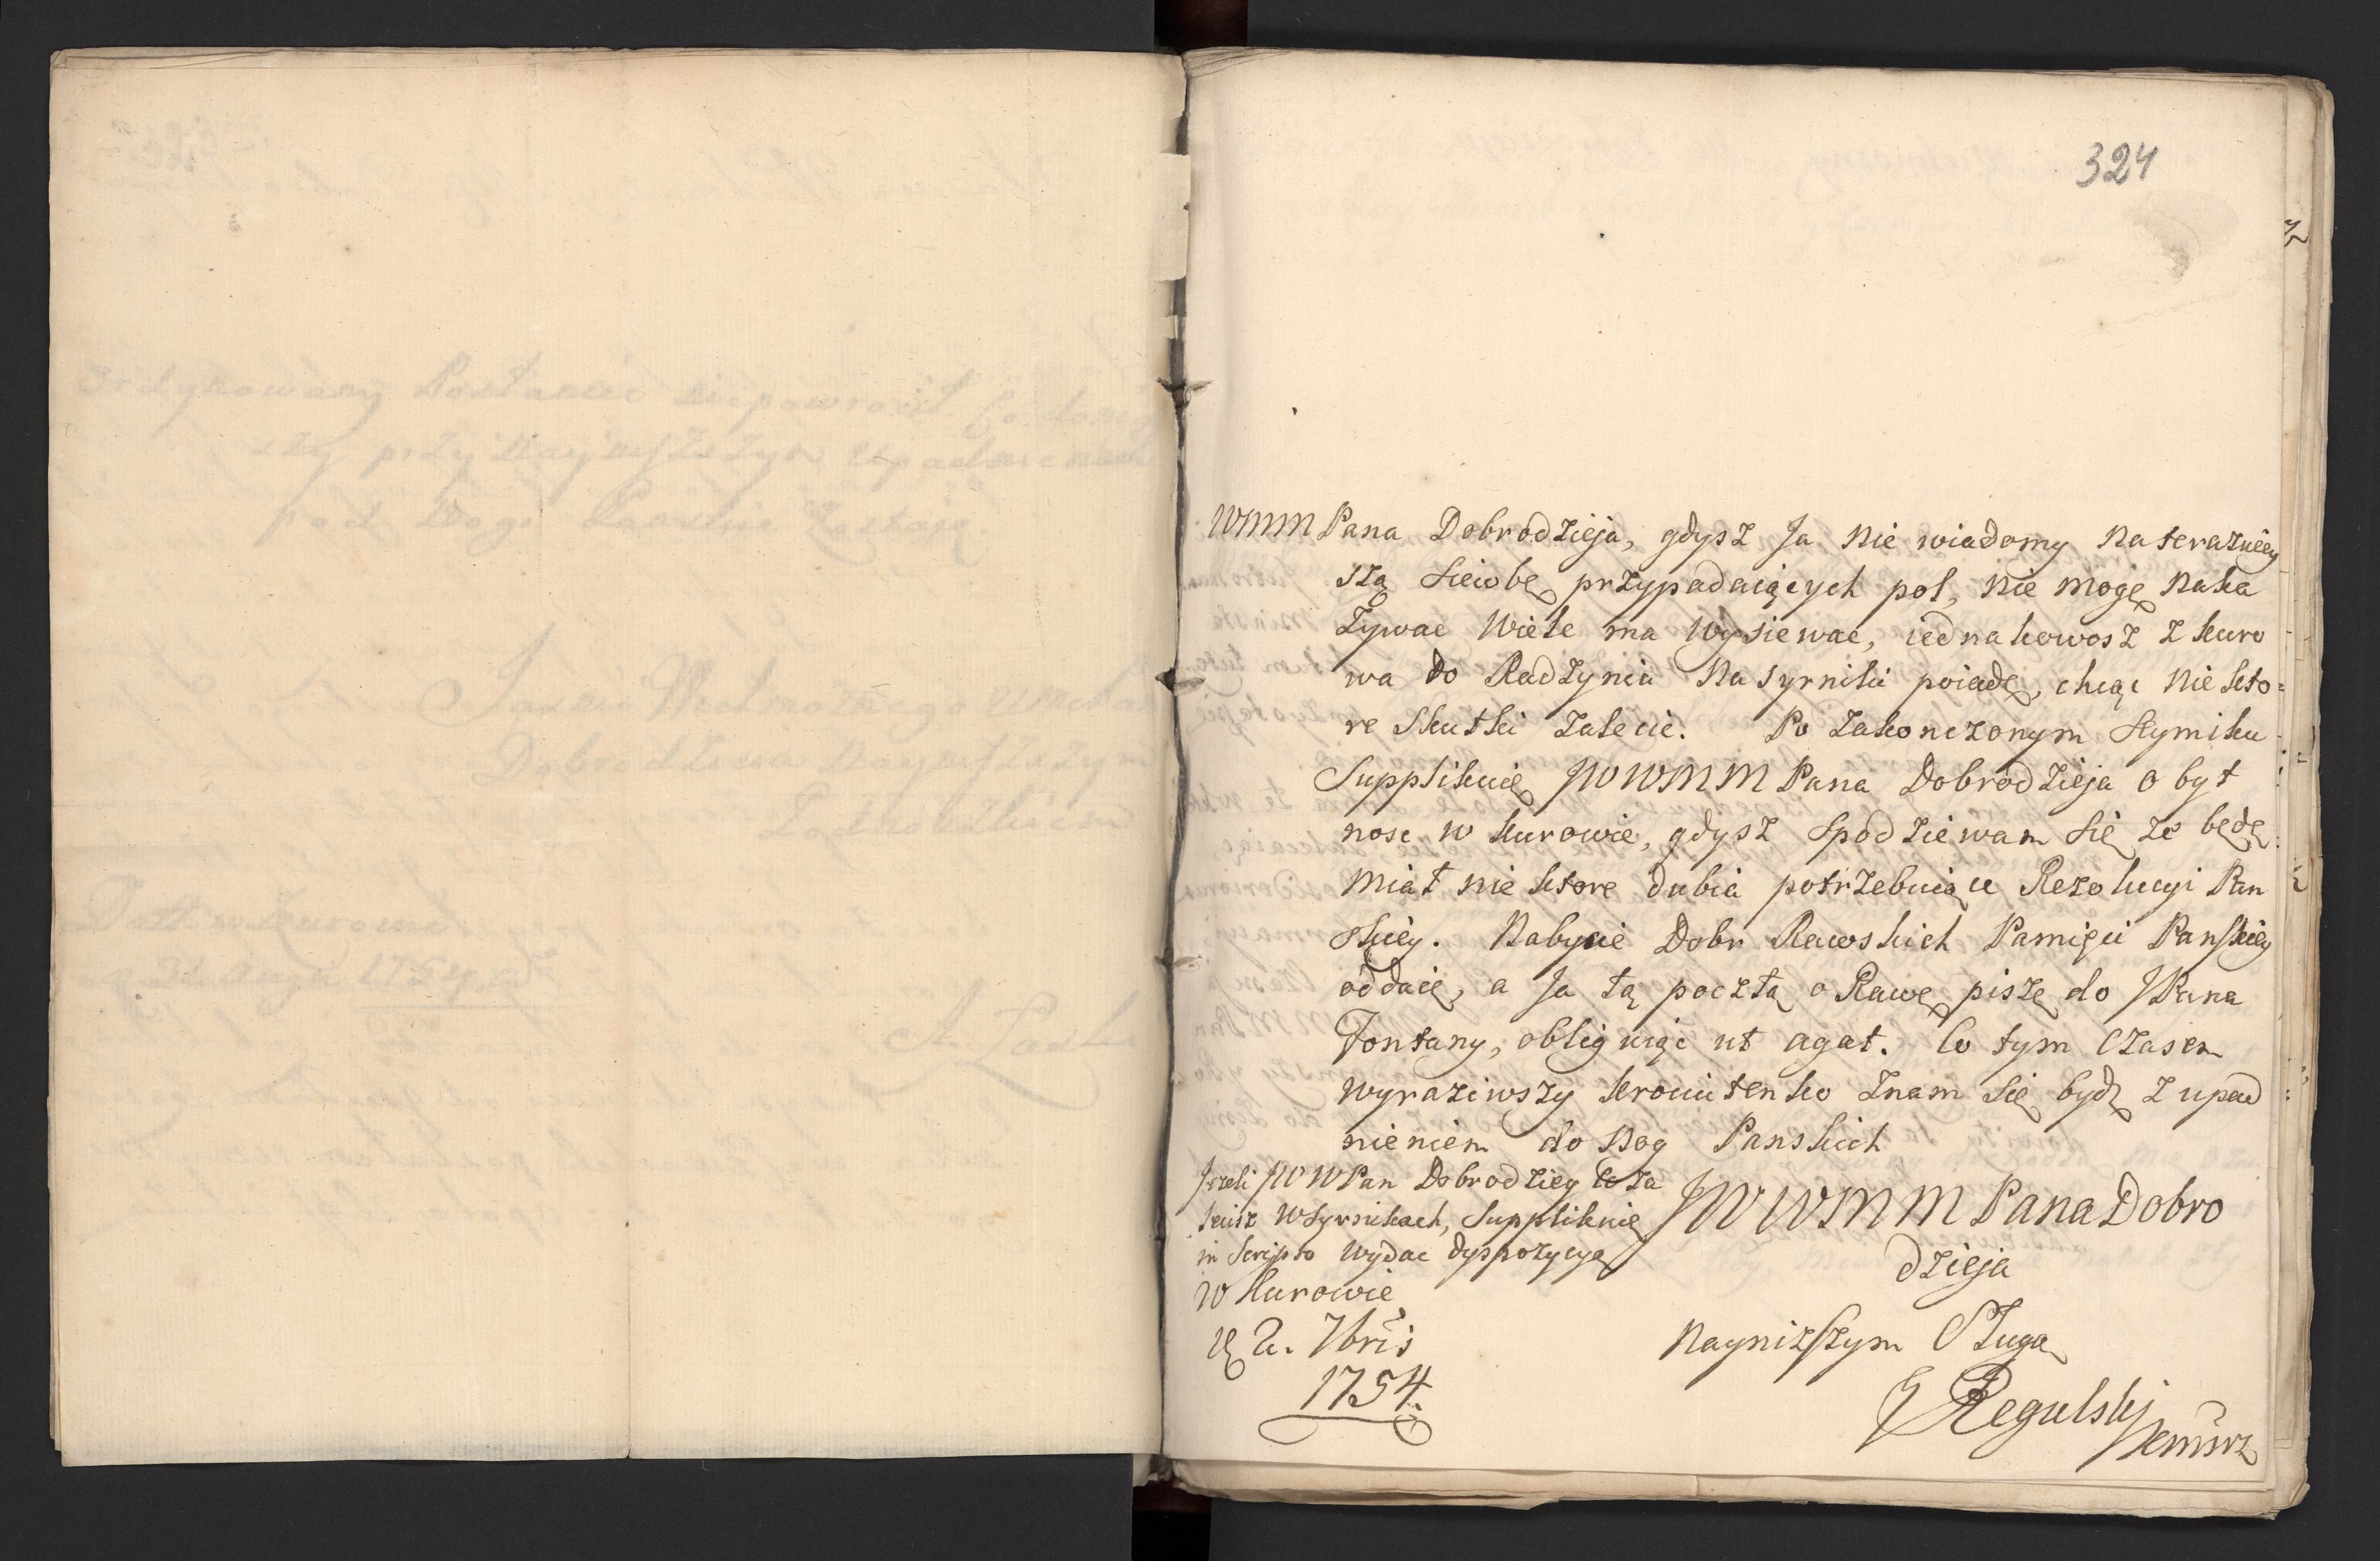 324
WMM Pana Dobrodzieja, gdysz Ja nie wiadomy na terazniey
szą siewbę przypadaiących pol, nie mogę naka
zywac wiele ma wysiewac, iednakowosz z kuro
wa do Radzynia na syrniki poiadę, chcąc niekto=
re skutki zalecic. Po zakonczonym Seymiku
Supplikuię JWWMM Pana Dobrodzieja o byt
nosc w kurowie, gdysz spodziewam się ze będę
miał niektore dubia potrzebuiące Rezolucyi Pan
skiey. Nabycie Dobr Rawskich Pamięci Panskiey
oddaię, a Ja tą pocztą o Rawę piszę do JPana
Fontany, obliguiąc ut agat. Co tym czasem
wyraziwszy krociutenko znam się bydź z upad
nieniem do nog Panskich
Jezeli JWWPan Dobrodziey
w Syrnikach, Supplikuię
in Scripto wydac dyspozycyą
JWWMM Pana Dobro
dzieja
w Kurowie
2. 7bris
1754.
Nayniższym Sługą
J Regulski